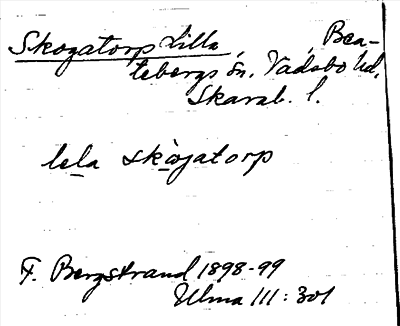 Skogatorp Lilla, , Bea-
tebergs sn. Vadsbo hd,
Skarab. l.
lela skogatorp
F. Bergstrand 1898-99
Ulma 111:301